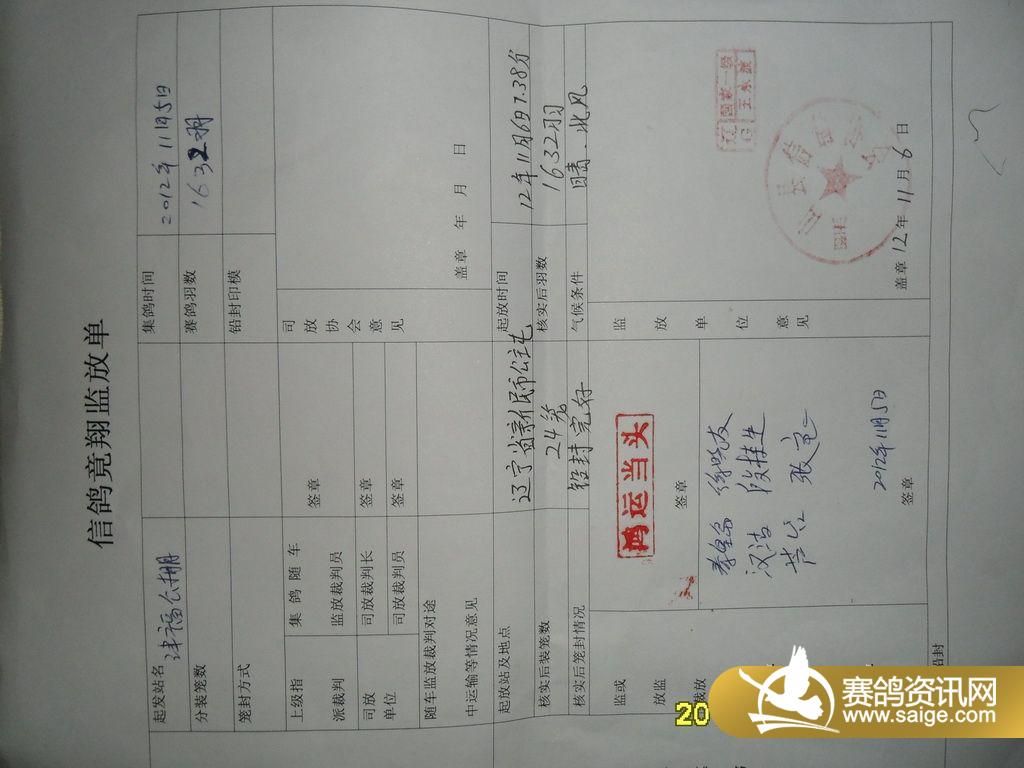 信鸽竟翔监放单
起发站名 津福公棚 集鸽时间 2012年11月5日
分装笼数 赛鸽羽数 1632羽
笼封方式 铅封印模
上级指派裁判 集鸽随车监放裁判员 签章 司放协会意见
司放单位 司放裁判长 签章
司放裁判员 签章
随车监放裁判对途中运输等情况意见 盖章 年 月 日
起放站及地点 辽宁省 起放时间 12年11月6日7.38分
核实后装笼数 24笼 核实后羽数 1632羽
核实后笼封情况 铅封完好 气候条件 晴.北风
监或 鸿运当头 监放单位意见
放监 签章
裁放
汉洁
2012年11月5日
签章
盖章 12年11月6日
铅封
20
赛鸽资讯网
www.saige.com